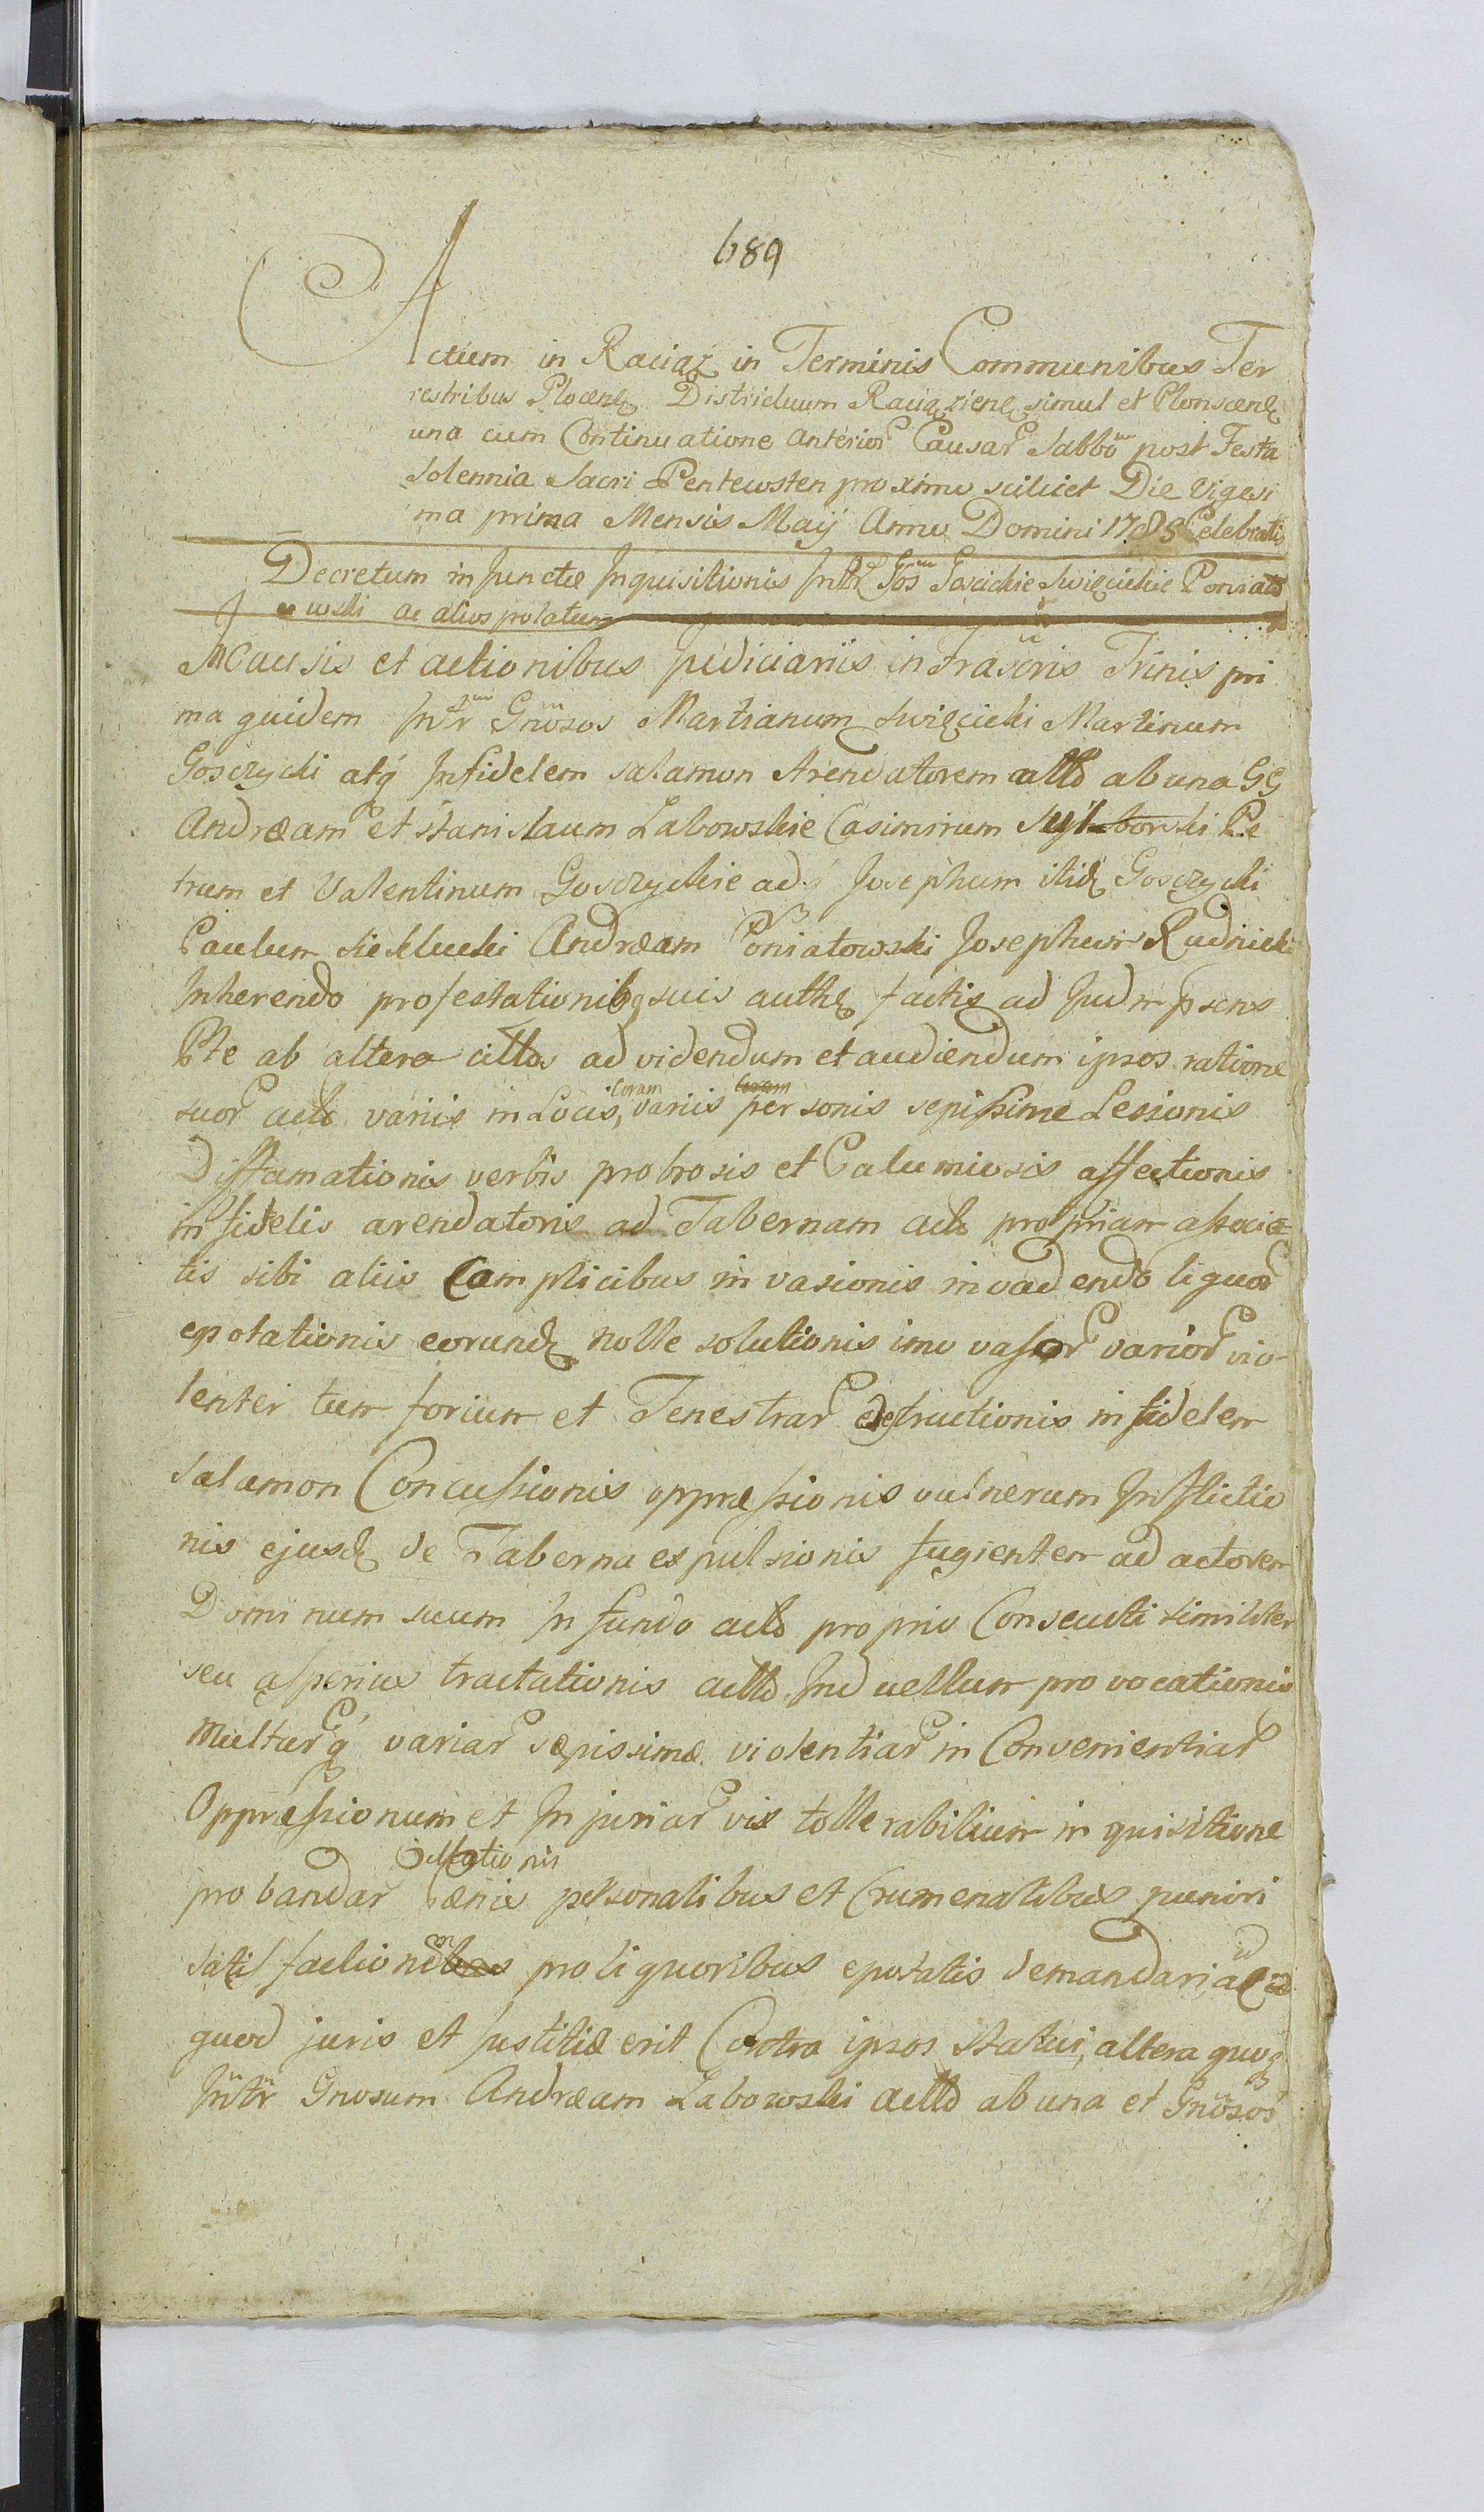 689
Actum in Raciąz in Terminis Communibus Ter
restribus Plocenẽ Districtuum Raciązienẽ simul et Plonscenẽ
una cum Continuatione anterior Causar Sabbo post Festa
Solennia Sacri Pentecosten proximo scilicet Die Vigesi
ma prima Mensis Maij Anno Domini 1785 Celebratis
Decretum injunctæ Inquisitionis Intr Gos Goscickie Swięcickie Poniato
wski ac alios prolatum
In Causis et actionibus judiciariis infrascris Trinis pri
ma quidem Intr Gnosos Martianum Swięcicki Martinum
Gosczycki atq Infidelem Salamon Arendatorem actto ab una GG
Andræam et Stanislaum Łabowskie Casimirum Pe
trum et Valentinum Gosczyckie adq Josephum itidẽ Gosczycki
Paulum Sieklucki Andræam Poniatowski Josephum Rudnicki
Inherendo protestationibq suis authẽ factis ad Judm psens
Pte ab altera cittos ad videndum et audiendum ipsos ratione
suor acto variis in Locis, Coram variis personis sepissime Lesionis
Diffamationis verbis probrosis et Calumiosis affectionis
infidelis arendatoris ad Tabernam acto propriam associa
tis sibi aliis Complicibus invasionis invadendo liquor
epotationis eorundẽ nolle solutionis imo vasor varior vio-
lenter tum forium et Fenestrar destructionis infidelem
Salamon Concussionis oppræssionis vulnerum Inflictio
nis ejusdẽ de Taberna expulsionis fugientem ad actorem
Dominum suum In fundo acto proprio Consecuti similiter
seu asperius tractationis actto Induellum provocationis
Multarq variar sæpissime violentiar inConvenientiar
Oppræssionum et Injuriar vix tollerabilium inquisitione
probandar Illationis pænis personalibus et Crumenalibus puniri
satisfactionem pro liquoribus epotatis demandari ac id
quod juris et Justitiæ erit Contra ipsos statui, altera quoq
Intr Gnosum Andræam Łabowski actto ab una et Gnosos